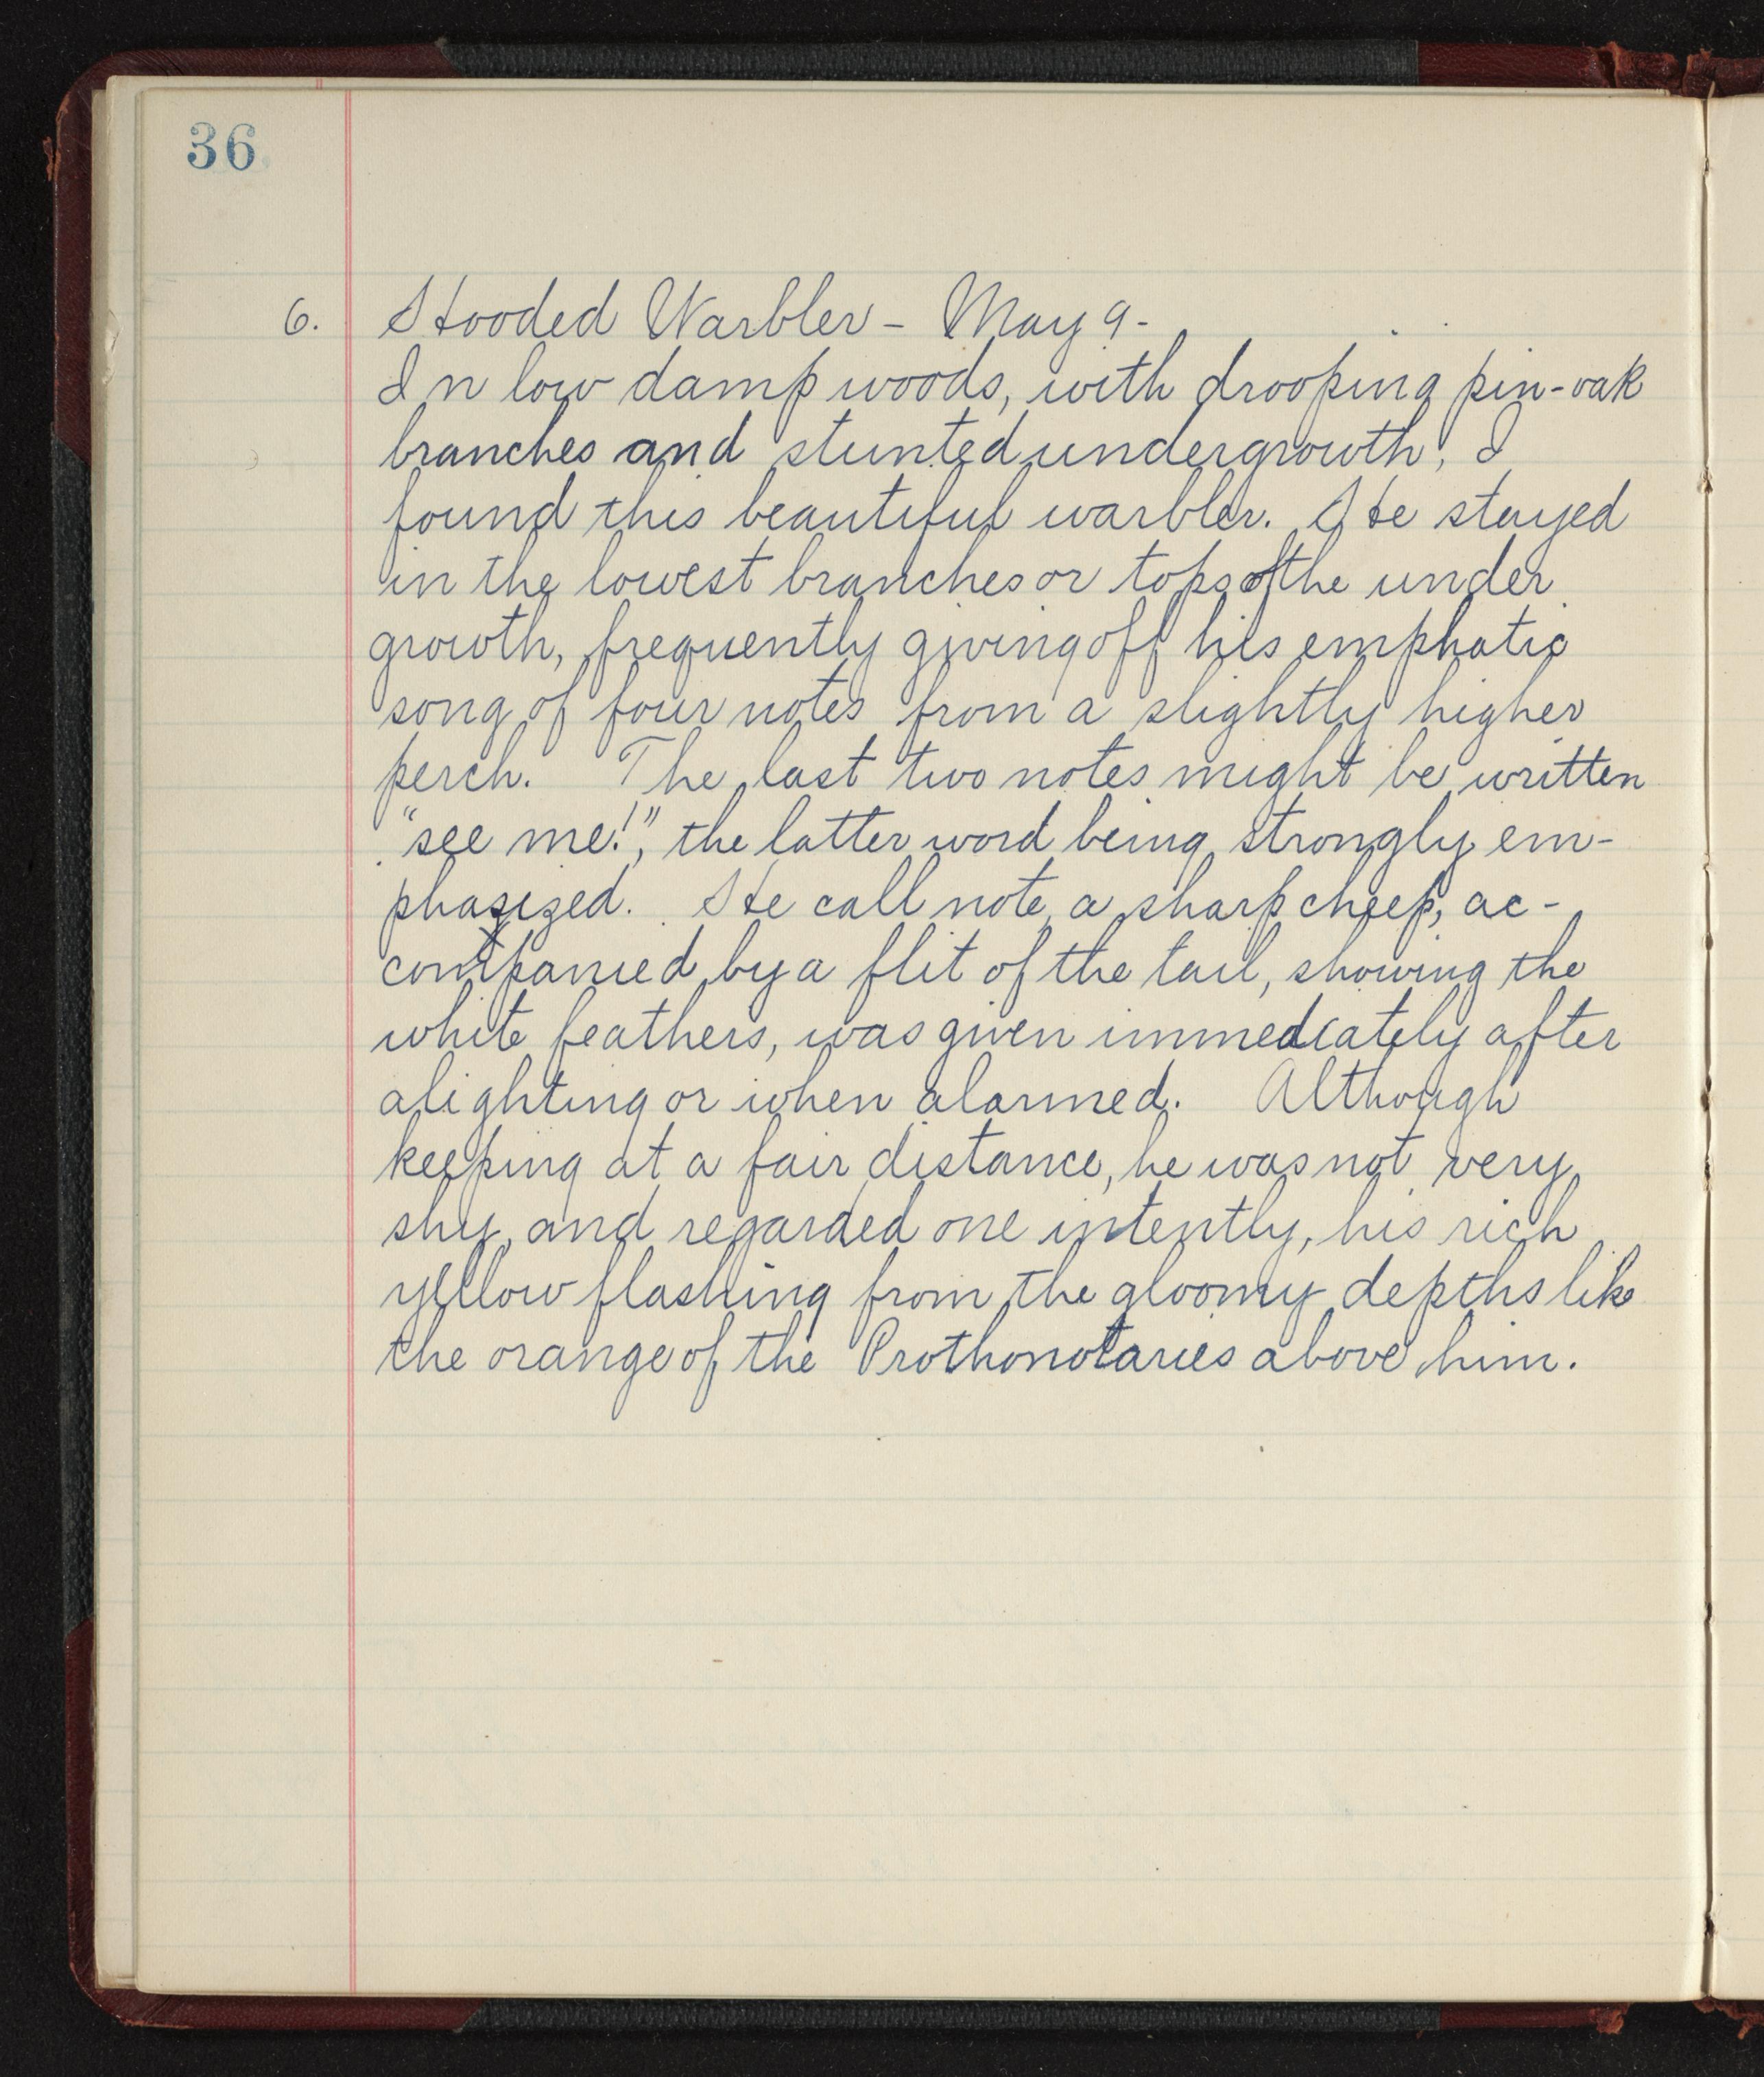 36
6. Hooded Warbler - May 9 -
In low damp woods, with drooping pin-oak
branches and stunted undergrowth, I
found this beautiful warbler. He stayed
in the lowest branches or tops of the under
growth, frequently giving off his emphatic
song of four notes from a slightly higher
perch. The last two notes might be written
"see me!", the latter word being strongly em-
phasized. He call note, a sharp cheep, ac-
companied by a flit of the tail, showing the
white feathers, was given immediately after
alighting or when alarmed. Although
keeping at a fair distance, he was not very
shy, and regarded one intently, his rich
yellow flashing from the gloomy depths like
the orange of the Prothonotaries above him.